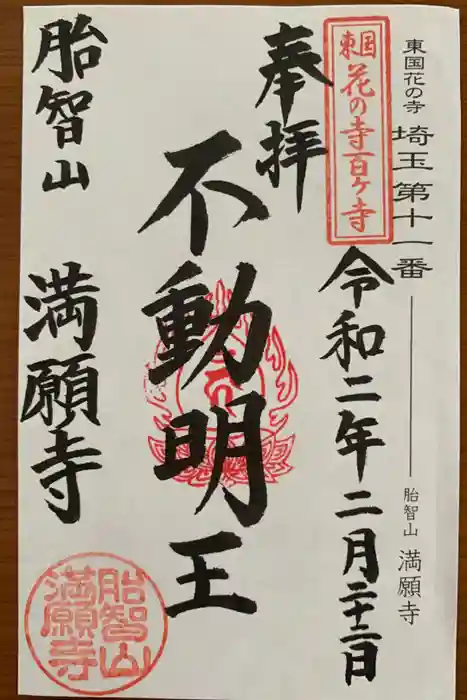 東国花の寺 埼玉第十一番 胎智山 満願寺
東国花の寺百ヶ寺
奉拝
令和二年二月二十三日
不動明王
胎智山 満願寺
胎智山
満願寺